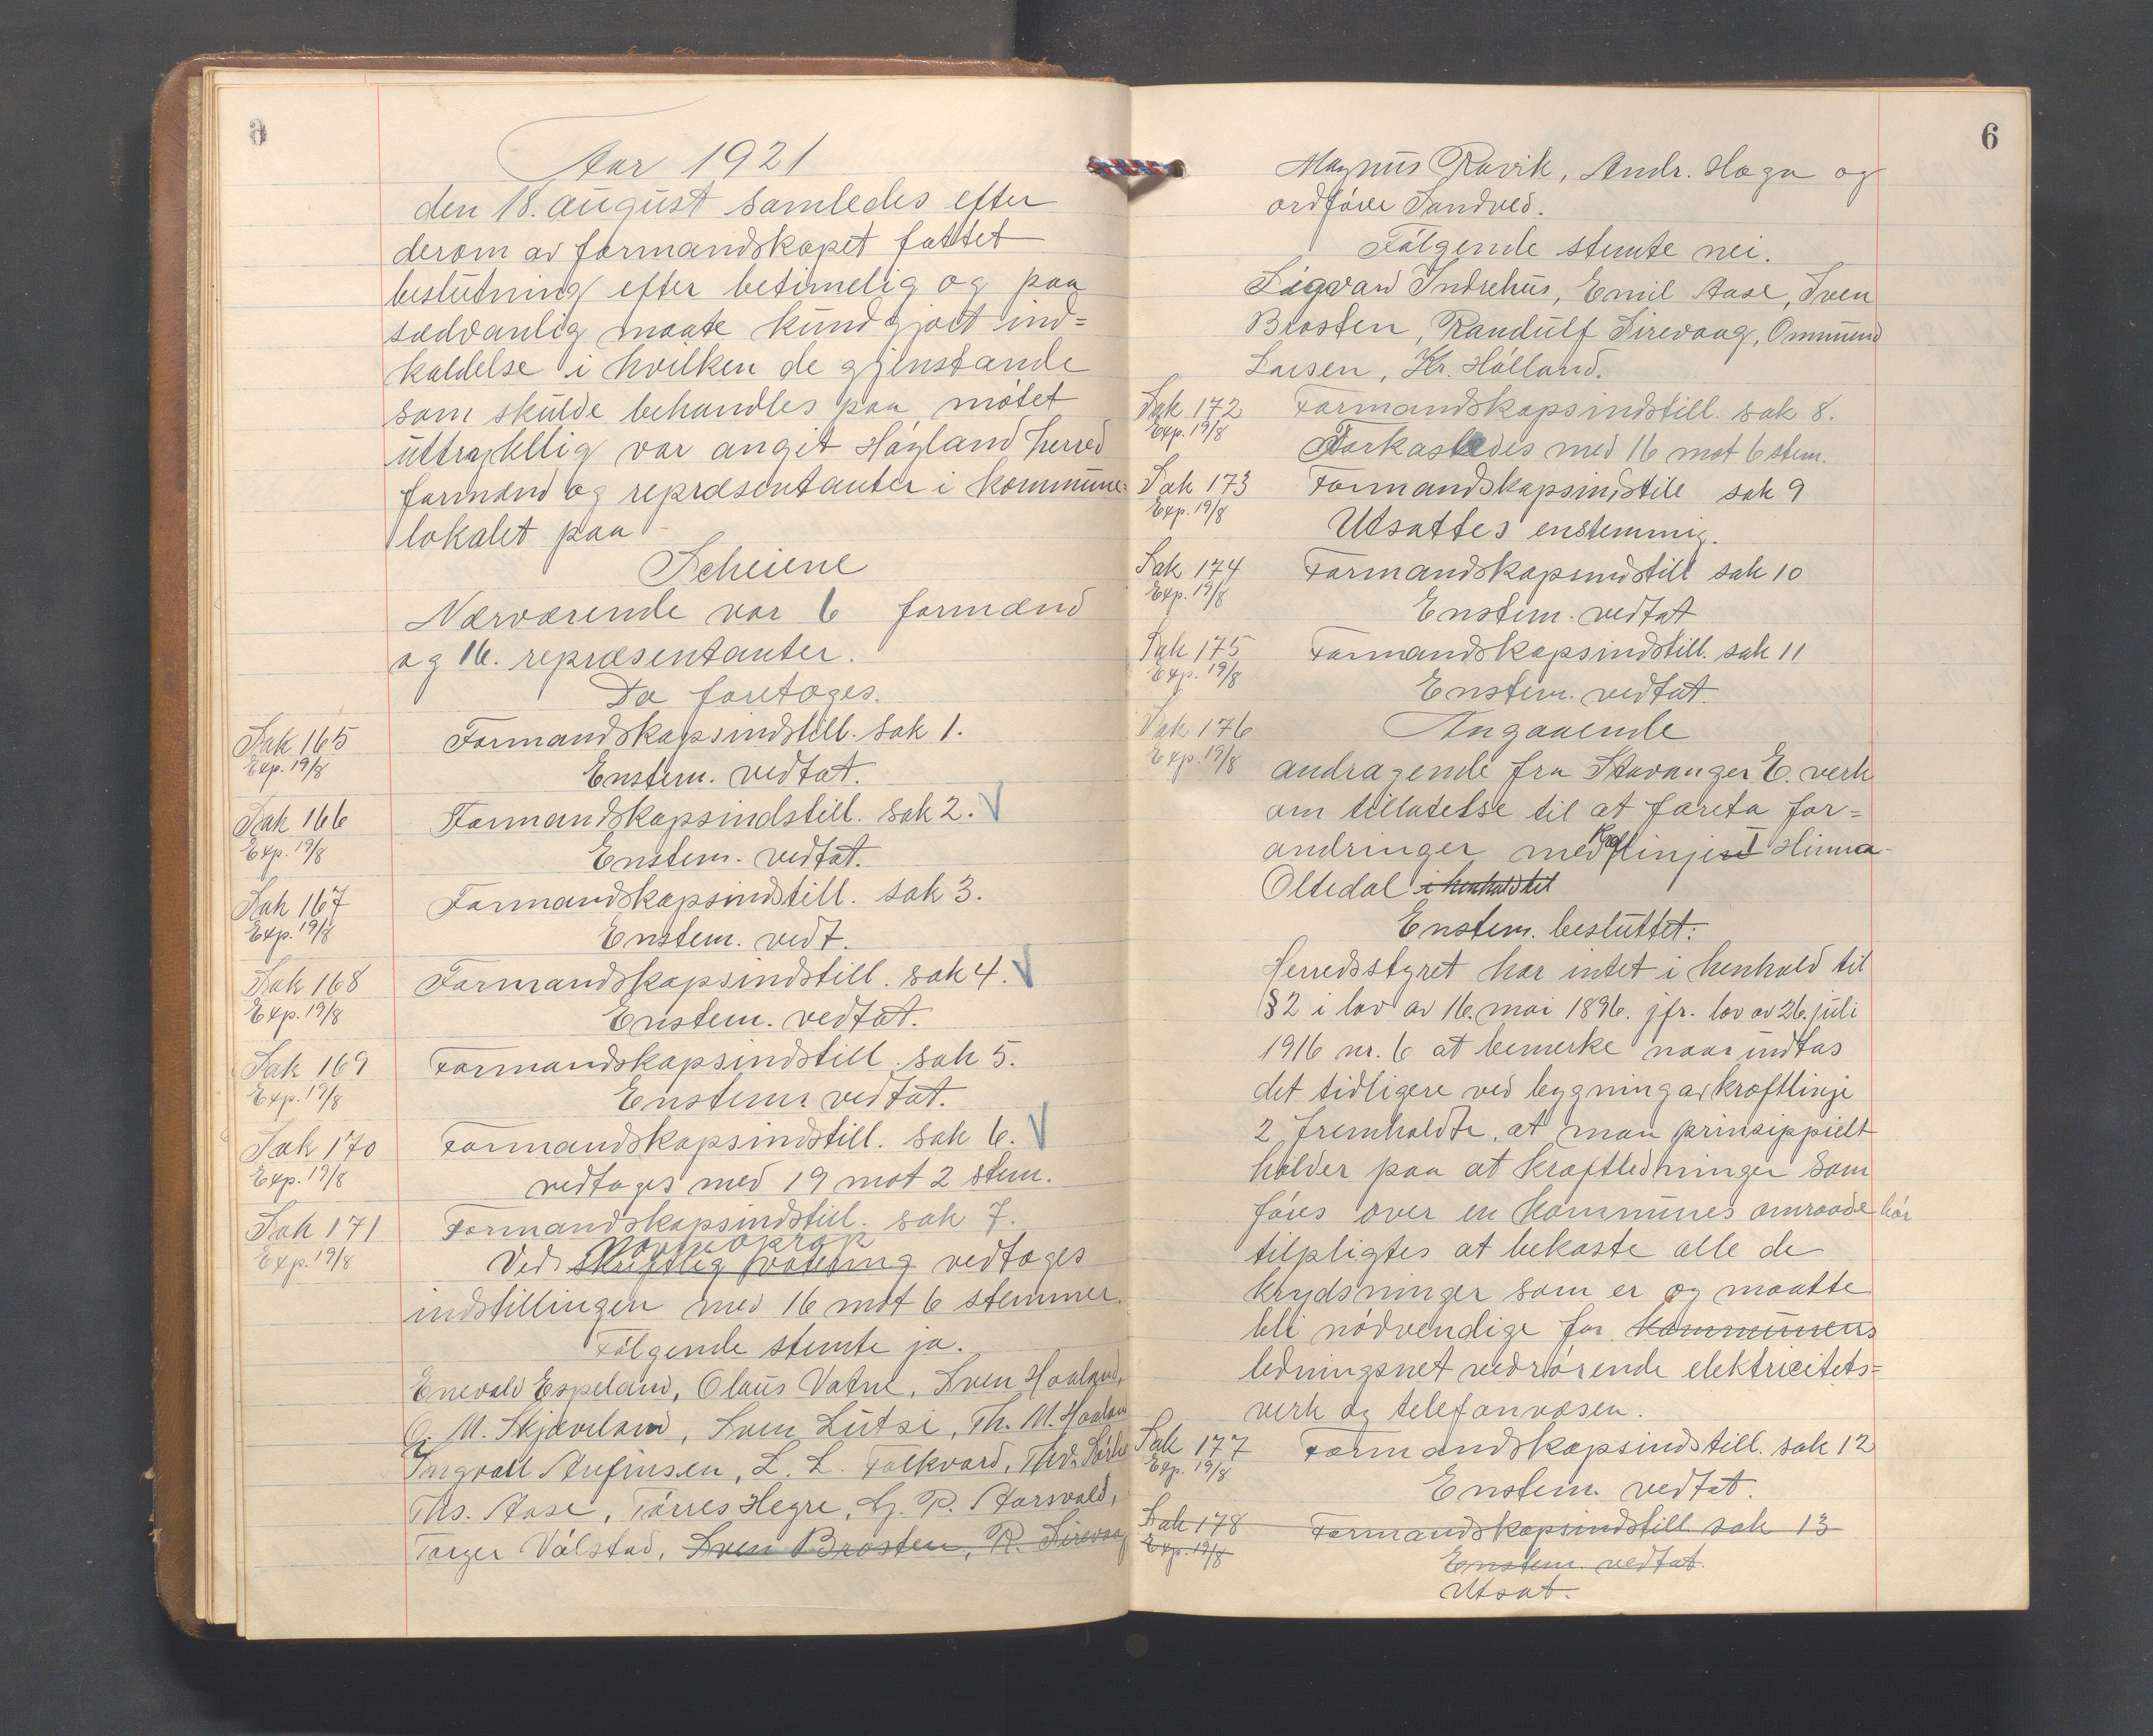 Aar 1921
den 18. august samledes efter
derom av formandskapet fattet
beslutning efter betimelig og paa
sædvanlig maate kundgjort ind=
kaldelse i hvilken de gjenstande
som skulde behandles paa møtet
uttrykkelig var angit Høyland herred
formænd og repræsentanter i kommune-
lokalet paa
Scheiene
Nærværende var 6 formænd
og 16. repræsentanter.
Da foretoges.
Sak 165 Formandskapsindstill. sak 1.
Exp. 19/8 Enstem. vedtat.
Sak 166 Formandskapsindstill. sak 2. V
Exp. 19/8 Enstem. vedtat.
Sak 167 Formandskapsindstill. sak 3.
Exp. 19/8 Enstem. vedt.
Sak 168 Formandskapsindstill. sak 4. V
Exp. 19/8 Enstem. vedtat.
Sak 169 Formandskapsindstill. sak 5.
Exp. 19/8 Enstem. vedtat.
Sak 170 Formandskapsindstill. sak 6. V
Exp. 19/8 vedtoges med 19 mot 2 stem.
Sak 171 Formandskapsindstill. sak 7.
navneoprop
Exp. 19/8 Ved skriftlig votering vedtoges
indstillingen med 16 mot 6 stemmer.
Følgende stemte ja.
Enevald Espeland, Olaus Vatne, Sven Haaland,
O. M. Skjæveland, Sven Lutsi, Th. M. Haaland
Ingvald Aufinsen, L. L. Folkvord,
Ths. Aase, Tørres Hegre, G. P. Aarsvold,
Torger Vølstad, Sven Brosten, R. Sirevaag
6
Magnus Ravik, Andr. Hagn og
ordføre Sandved.
Følgende stemte nei.
Sigvard Indrehus, Emil Aase, Sven
Brosten, Randulf Sirevaag, Ommund
Larsen, Kr. Hølland.
Sak 172 Formandskapsindstill. sak 8.
Exp. 19/8 Forkastedes med 16 mot 6 stem.
Sak 173 Formandskapsindstill sak 9
Exp. 19/8 Utsattes enstemmig.
Sak 174 Formandskapsindstill sak 10
Exp. 19/8 Enstem. vedtat
Sak 175 Formandskapsindstill. sak 11
Exp. 19/8 Enstem. vedtat.
Sak 176 Angaaende
Exp. 19/8 andragende fra Stavanger E. verk
om tillatelse til at foreta for=
andringer med linjen I Hinna-
Oltedal i henhold til
Enstem. besluttet:
Herredsstyret har intet i henhold til
§ 2 i lov av 16. mai 1896. jfr. lov av 26. juli
1916 nr. 6 at bemerke naar indtas
det tidligere ved bygning av kraftlinje
2 fremholdte, at man prinsippielt
holder paa at kraftledninger som
føres over en kommunes omraade bør
tilpligtes at bekoste alle de
krydsninger som er og maatte
bli nødvendige for kommunens
ledningsnet vedrørende elektricitets=
verk og telefonvæsen.
Sak 177 Formandskapsindstill. sak 12
Exp. 19/8 Enstem. vedtat.
Sak 178 Formandskapsindstill. sak 13
Exp. 19/8 Enstem. vedtat.
Utsat.